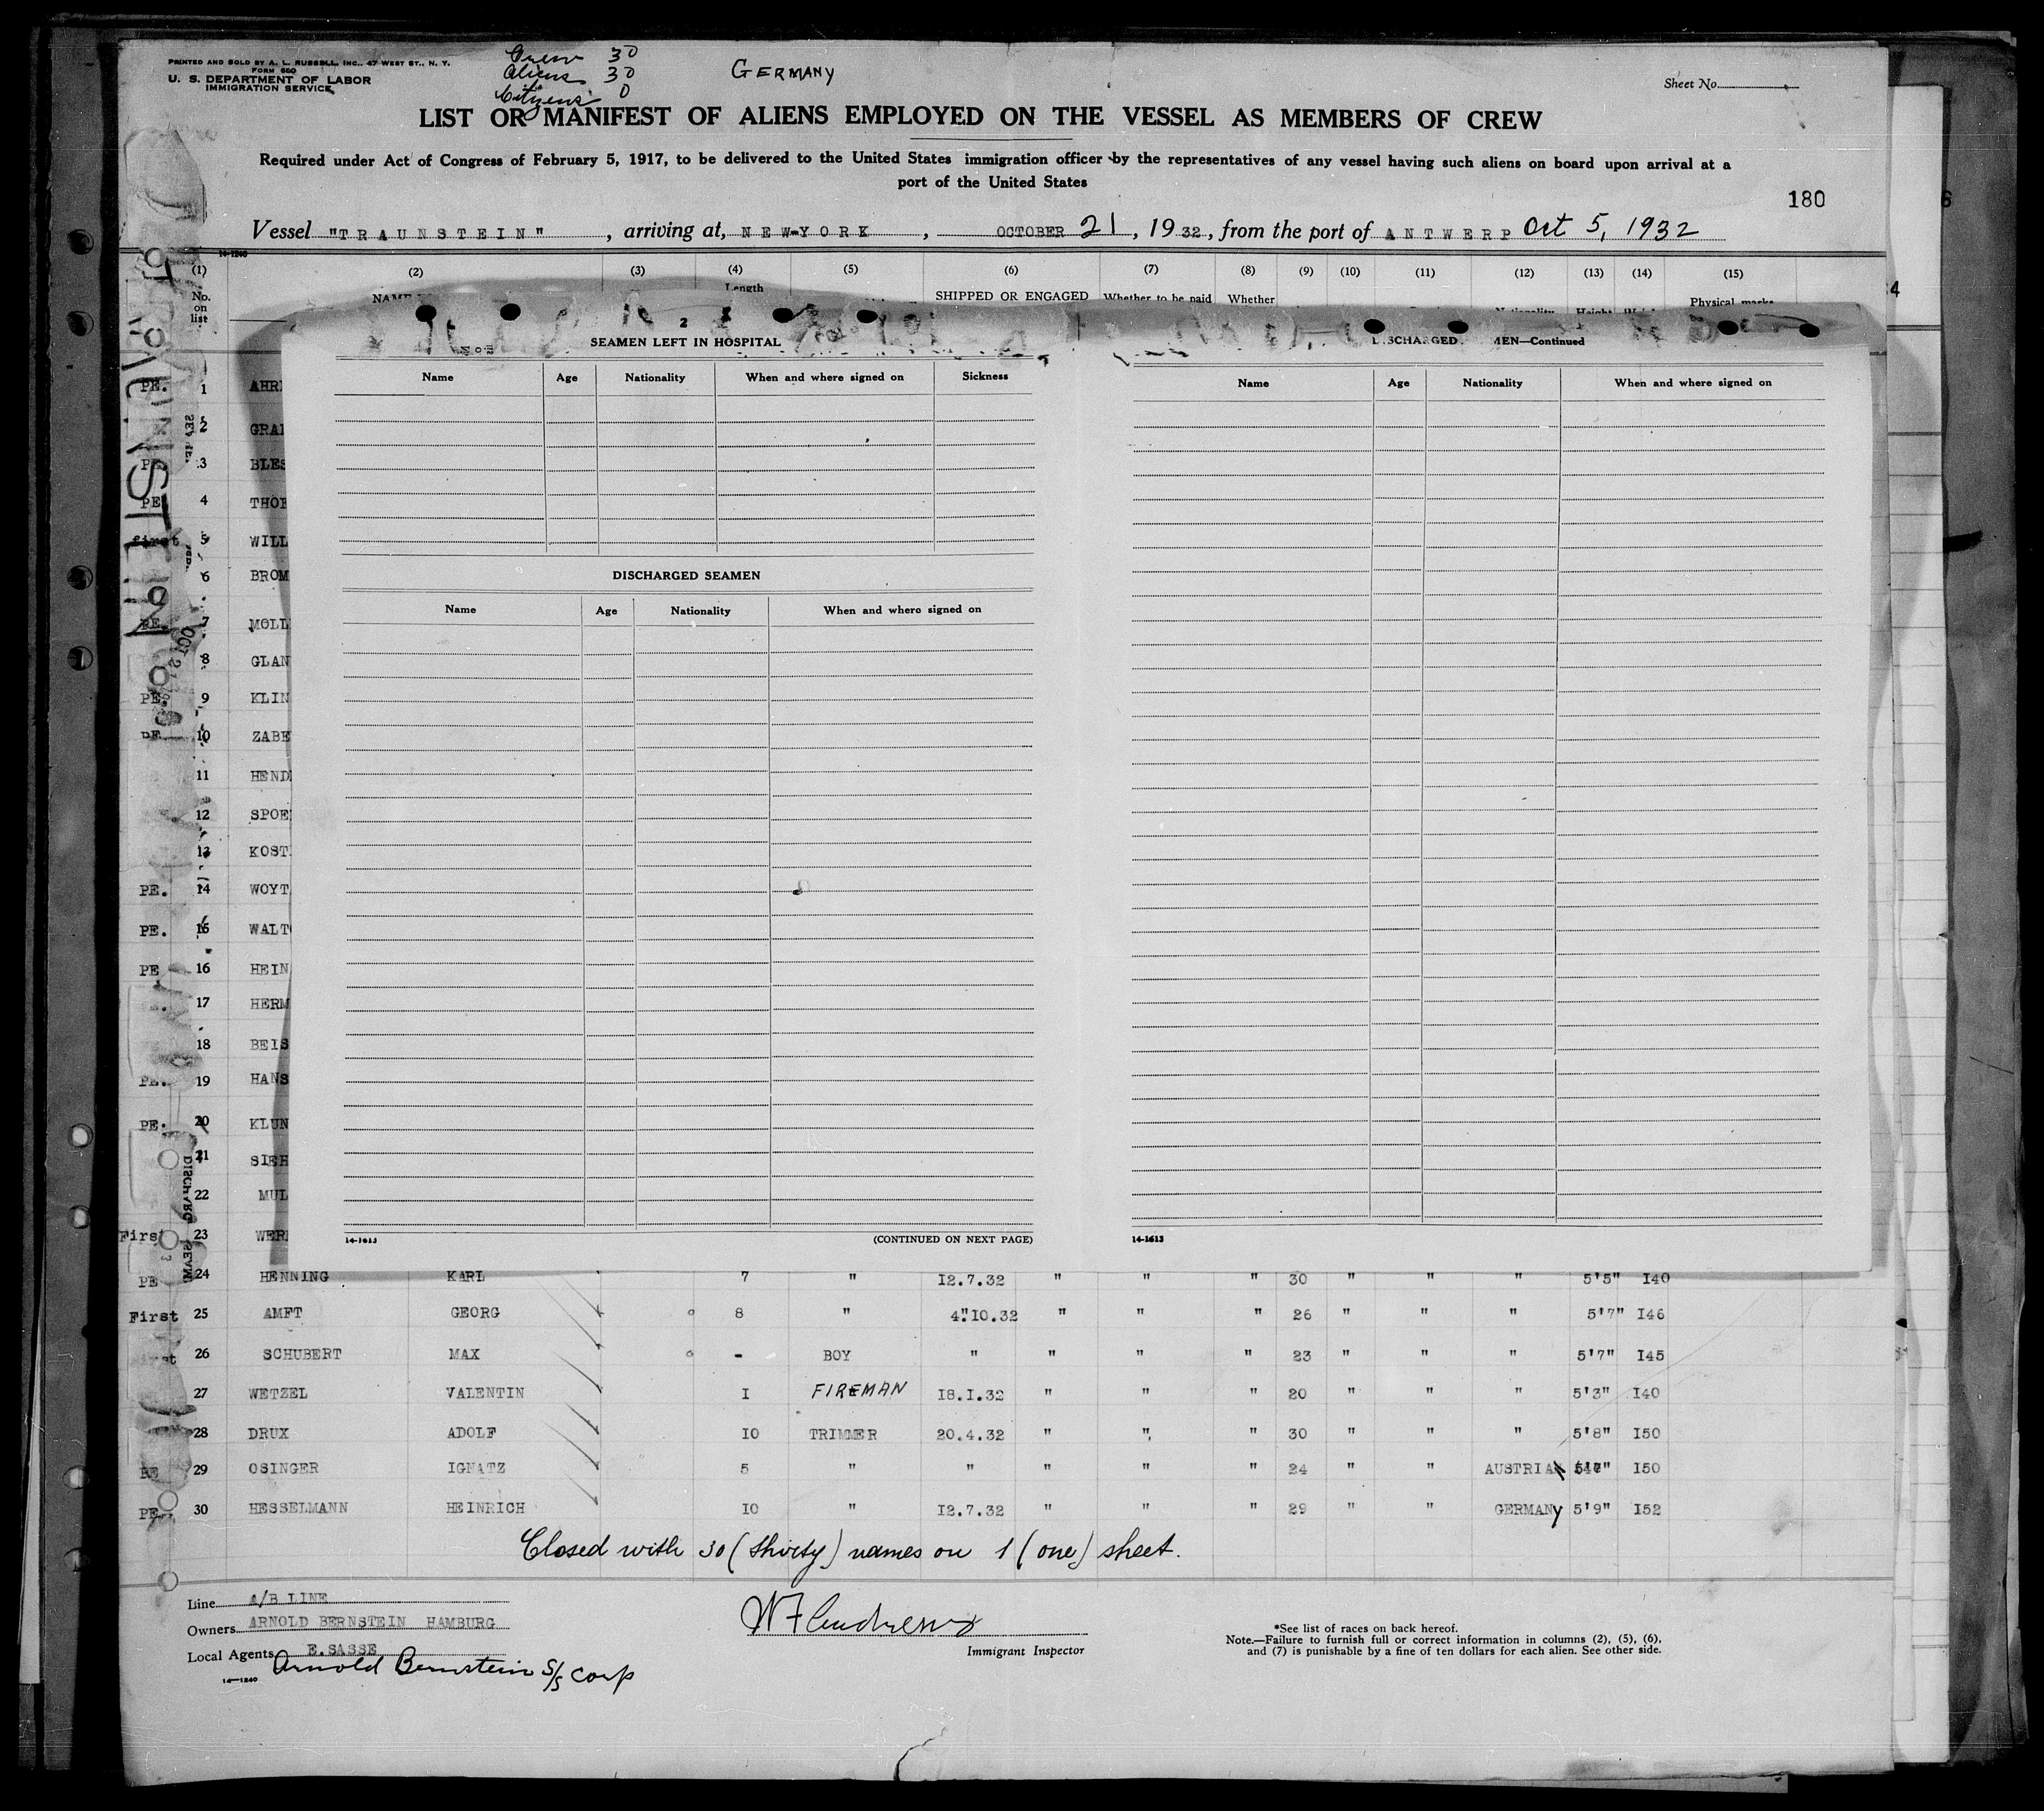 PRINTED AND SOLD BY A. L. RUSSELL, INC., 47 WEST ST., N. Y.
FORM 680
U. S. DEPARTMENT OF LABOR
IMMIGRATION SERVICE
Crew 30
Aliens 30
Citizens 0
GERMANY
Sheet No.
LIST OR MANIFEST OF ALIENS EMPLOYED ON THE VESSEL AS MEMBERS OF CREW
Required under Act of Congress of February 5, 1917, to be delivered to the United States immigration officer by the representatives of any vessel having such aliens on board upon arrival at a
port of the United States
180
Vessel "TRAUNSTEIN", arriving at, NEW-YORK, OCTOBER 21, 1932, from the port of ANTWERP Oct 5, 1932
14-1240
(1) (2) (3) (4) (5) (6) (7) (8) (9) (10) (11) (12) (13) (14) (15)
No. on list
Length
SHIPPED OR ENGAGED Whether to be paid Whether Physical marks
TRAUNSTEIN
SEAMEN LEFT IN HOSPITAL
Name Age Nationality When and where signed on Sickness
DISCHARGED SEAMEN
Name Age Nationality When and where signed on
14-1613 (CONTINUED ON NEXT PAGE)
DISCHARGED MEN—Continued
Name Age Nationality When and where signed on
14-1613
PE. 1 AHR
2 GRA
PE 3 BLES
PE 4 THO
first 5 WILL
6 BROM
PE. 7 MOLL
8 GLAN
PE. 9 KLIN
PE 10 ZABE
11 HEND
12 SPOE
13 KOST
PE. 14 WOYT
PE. 15 WALT
PE 16 HEIN
17 HERM
18 BEIS
PE. 19 HANS
PE. 20 KLUN
21 SIEH
22 MUL
First 23 WER
PE 24 HENNING KARL 7 " 12.7.32 " " " 30 " " " 5'5" 140
First 25 AMFT GEORG 8 " 4."10.32 " " " 26 " " " 5'7" 146
26 SCHUBERT MAX - BOY " " " " 23 " " " 5'7" 145
27 WETZEL VALENTIN I FIREMAN 18.I.32 " " " 20 " " " 5'3" 140
28 DRUX ADOLF 10 TRIMMER 20.4.32 " " " 30 " " " 5'8" 150
PE 29 OSINGER IGNATZ 5 " " " " " 24 " " AUSTRIA 150
PE. 30 HESSELMANN HEINRICH 10 " 12.7.32 " " " 29 " " GERMANY 5'9" 152
Closed with 30 (thirty) names on 1 (one) sheet.
Line A/B LINE
Owners ARNOLD BERNSTEIN HAMBURG
Local Agents E.SASSE
Arnold Bernstein S/S Corp
14-1240
Immigrant Inspector
*See list of races on back hereof.
Note.—Failure to furnish full or correct information in columns (2), (5), (6),
and (7) is punishable by a fine of ten dollars for each alien. See other side.